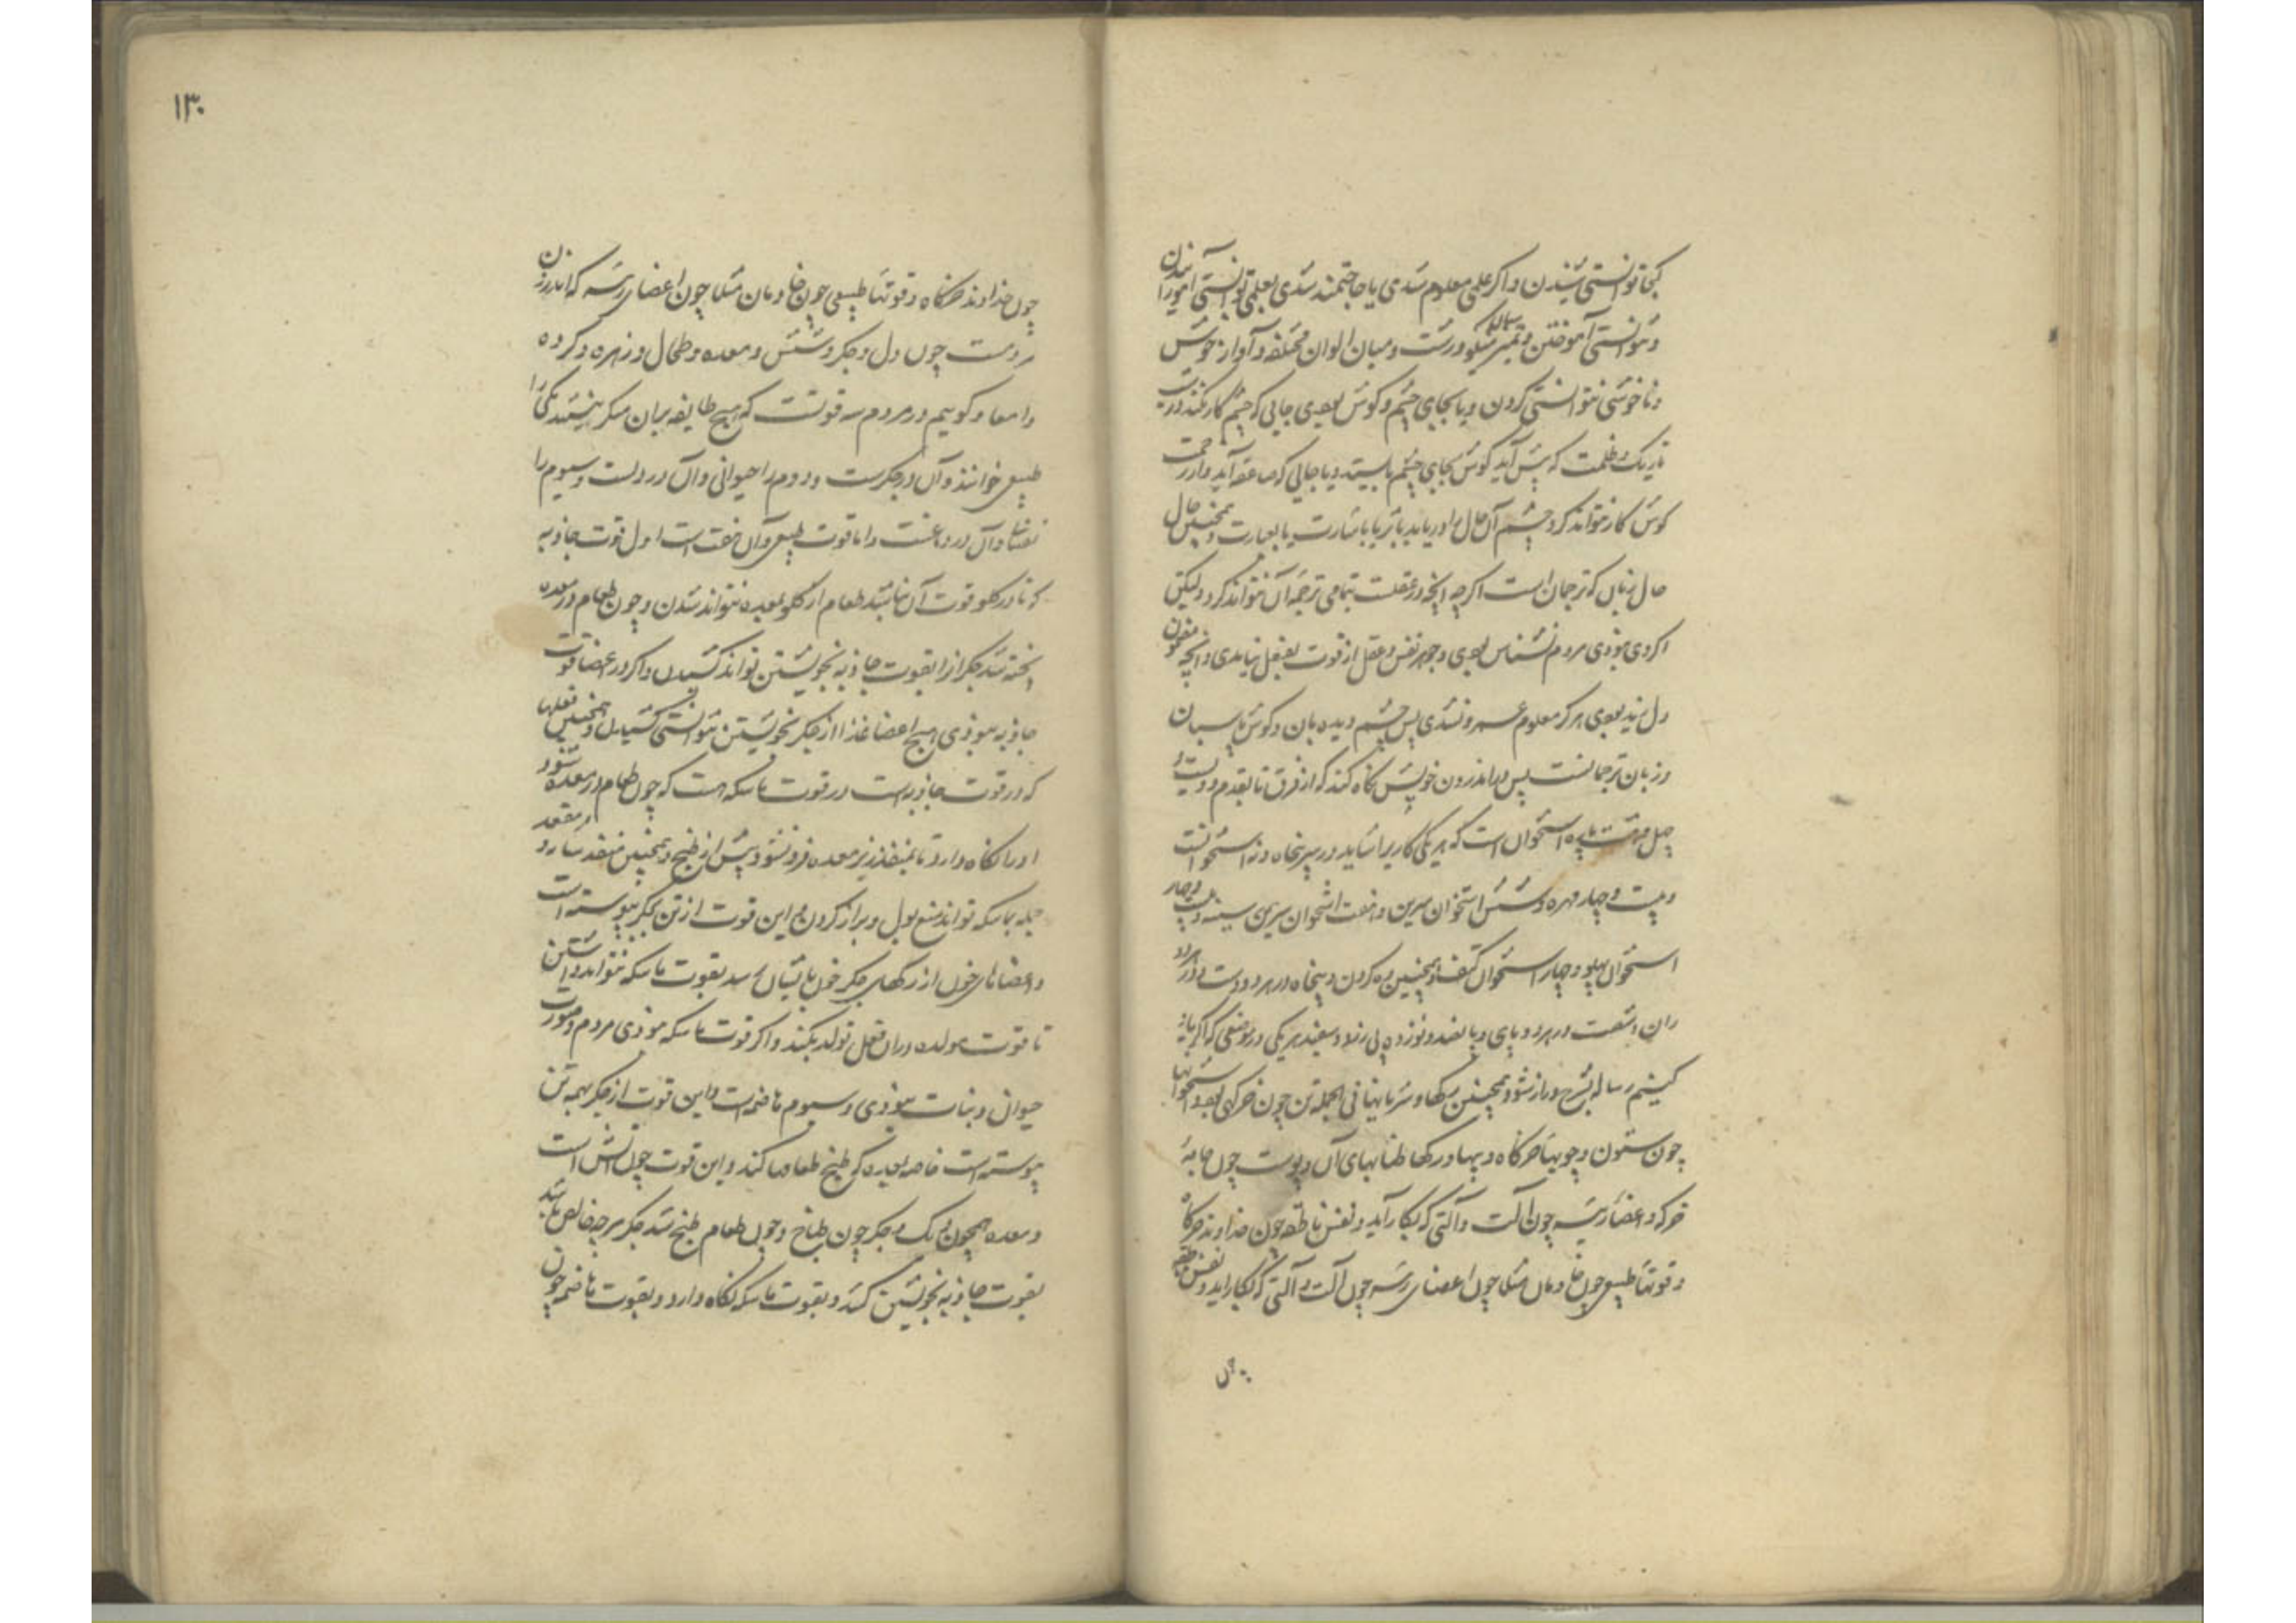 کجا توانستی شنیدن و اگر علمی معلوم شدی یا حاجتمند شدی بعلمی توانستی آموزانیدن
و نتوانستی آموختن و تمیز میان نیکو و زشت و میان الوان مختلف و آواز خوش
و ناخوشی نتوانستی کردن و یا بجای چشم و گوش بودی جایی که چشم کار نکند در
تاریک و ظلمت که پیش آید گوش بجای چشم بایستد و یا جایی که صاعقه آید و از رحمت
گوش کار نتواند کرد چشم آن حال را دریابد یا باشارت یا بعبارت و همچنین حال
حال زبان که ترجمان است اگرچه آنچه در عقلست بتمامی ترجمه آن نتواند کرد ولیکن
اگر وی نبودی مردم نسناس بودی و جوهر نفس و عقل از قوت بفعل نیامدی و آنچه مقرون
دل بودی هرگز معلوم نشدی پس چشم دیده بان و گوش پاسبان
و زبان ترجمانست پس در اندرون خویش نگاه کند که از فرق تا بقدم دویست و
چهل و هشت پاره استخوان است که هر یکی کاری را شاید در سر پنجاه و نه استخوانست
و بیست و چهار مهره و شش استخوان سرین و هفت استخوان سینه و بیست و چهار
استخوان پهلو و چهار استخوان کتف و همچنین گردن و پنجاه در هر دو دست و در هر دو
ران و شصت در هر دو پای و پانصد و نوزده پی زرد و سفید هر یکی در موضعی که اگر یاد
کنیم رساله بشرح دراز شود و همچنین رگها و شریانها فی الجمله تن چون خرگهی بود و استخوانها
چون ستون و چوبها خرگاه و پیها و رگها طنابهای آن و پوست چون جامهٔ
خرگه و اعضاء رئیسه چون آلت و آلتی که بکار آید و نفس ناطقه چون خداوند خرگاه
و قوتهاء طبیعی چون خادمان مثلا چون اعضای رئیسه چون آلت و آلتی که بکار آید و نفس ناطقه
چون
۱۳۰
چون خداوند خرگاه و قوتهاء طبیعی چون خادمان مثلا چون اعضای رئیسه که اندرون
مردمست چون دل و جگر و شش و معده و طحال و زهره و گرده
و امعا و گوییم در مردم سه قوتست که هیچ طایفه بران منکر نیستند یکی را
طبیعی خوانند و آن در جگرست و دوم را حیوانی و آن در دلست و سیوم را
نفسانی و آن در دماغست و اما قوت طبیعی و آن هفت است اول قوت جاذبه
که تا در گلو قوت آن نباشد طعام از گلو بمعده نتواند شدن و چون طعام در معده
پخته شد جگر آنرا بقوت جاذبه بخویشتن تواند کشیدن و اگر در اعضا قوت
جاذبه نبوذی هیچ اعضا غذا از جگر بخویشتن نتوانستی کشیدن و همچنین
که در قوت جاذبه است در قوت ماسکه هست که چون طعام در معده شود
او را نگاه دارد تا بمنفذ زیر معده فرو نشود پیش از طبخ و همچنین منفذ
جمله بماسکه تواند منع بول و براز کردن و این قوت از تن جگر پیوسته است
و اعضاهای خون از رگهای جگر خون بایشان رسد بقوت ماسکه نتواند داشتن
تا قوت مولده دران فعل تولد بکند و اگر قوت ماسکه نبوذی مردم و صورت
حیوان و نبات نبوذی و سیوم هاضمه است و این قوت از جگر بهمه تن
پیوسته است خاصه بمعده که طبخ طعامها کند و این قوت چون آتش است
و معده همچون دیگ و جگر چون طباخ و چون طعام طبخ شد جگر هرچه خالص باشد
بقوت جاذبه بخویشتن کشد و بقوت ماسکه نگاه دارد و بقوت هاضمه چون